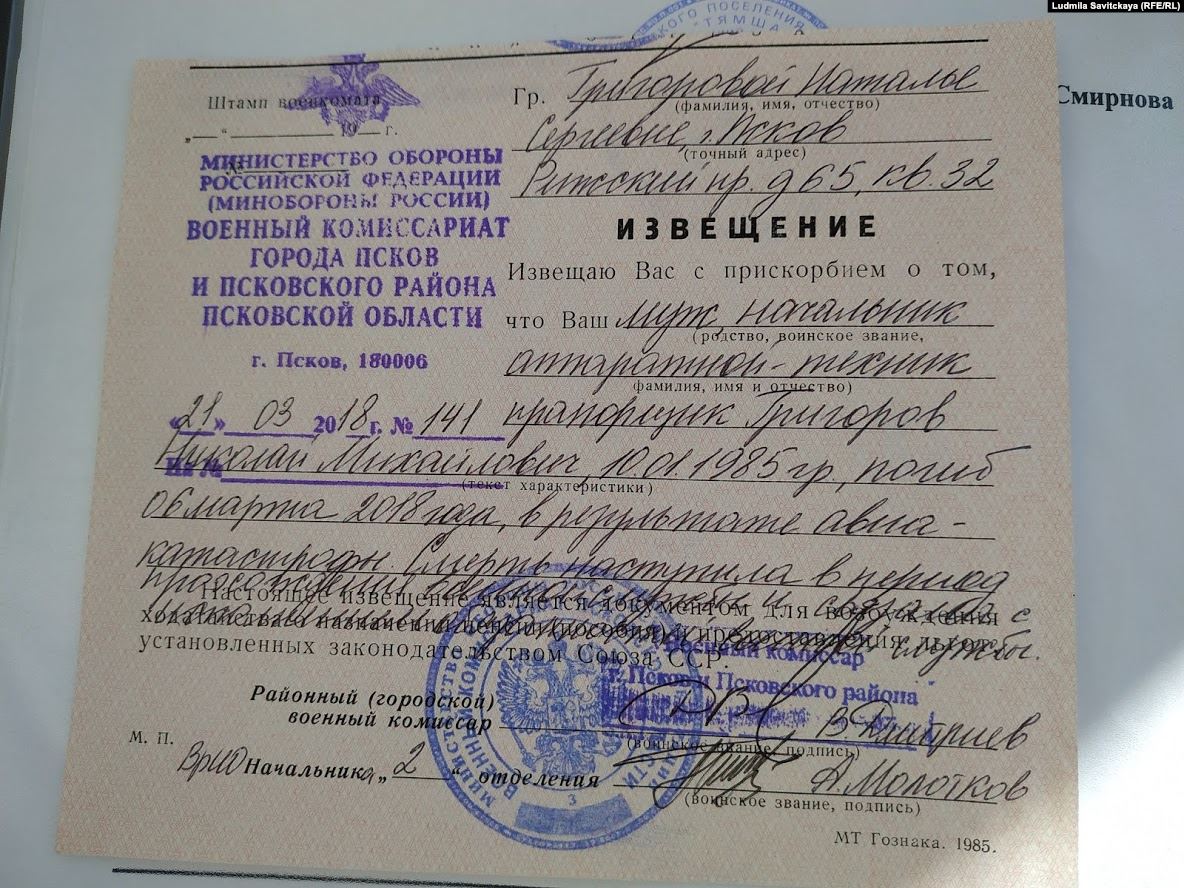 Ludmila Savitckaya (RFE/RL)
КОГО ПОСЕЛЕНИЯ
ТЯМША
Смирнова
Штамп военкомата
„ — “ 19 — г.
№
МИНИСТЕРСТВО ОБОРОНЫ
РОССИЙСКОЙ ФЕДЕРАЦИИ
(МИНОБОРОНЫ РОССИИ)
ВОЕННЫЙ КОМИССАРИАТ
ГОРОДА ПСКОВ
И ПСКОВСКОГО РАЙОНА
ПСКОВСКОЙ ОБЛАСТИ
г. Псков, 180006
«21» 03 2018 г. № 141
На №
Гр. Григоровой Наталье
(фамилия, имя, отчество)
Сергеевне, г. Псков
(точный адрес)
Рижский пр. д 65, кв. 32
ИЗВЕЩЕНИЕ
Извещаю Вас с прискорбием о том,
что Ваш муж, начальник
(родство, воинское звание,
аппаратной - техник
фамилия, имя и отчество)
прапорщик Григоров
Николай Михайлович, 10.01.1985 гр., погиб
(текст характеристики)
06 марта 2018 года, в результате авиа-
катастрофы. Смерть наступила в период
прохождения военной службы и связана с
Настоящее извещение является документом для возбуждения
ходатайства о назначении пенсии (пособия) и предоставлении льгот,
службы.
установленных законодательством Союза ССР.
Военный комиссар
г. Псков и Псковского района
Районный (городской)
военный комиссар
В Дмитриев
(воинское звание, подпись)
М. П.
ВриО Начальника „2“ отделения
А. Молотков
(воинское звание, подпись)
3
МТ Гознака. 1985.